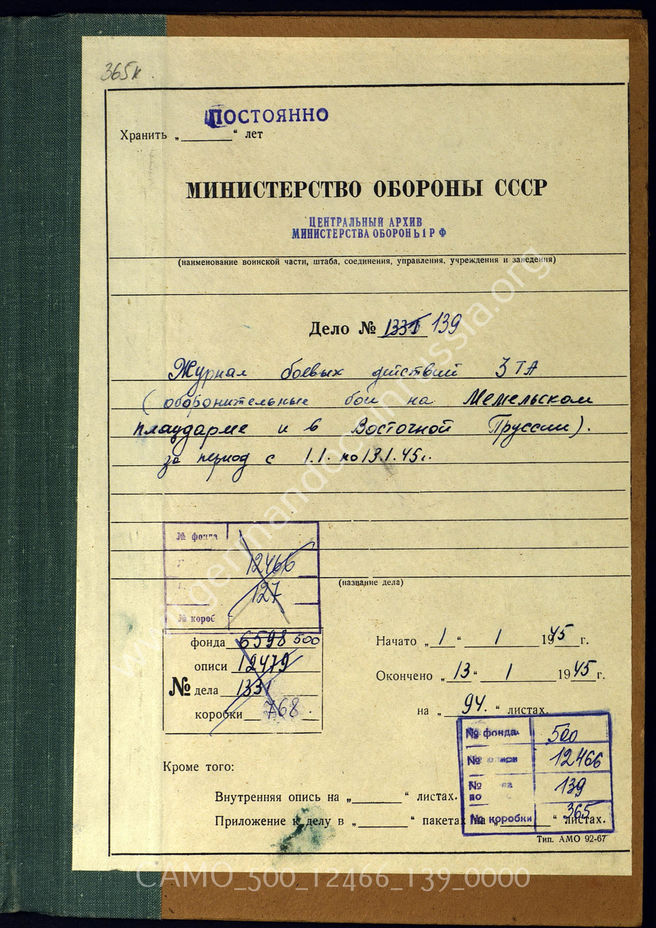 365к
ПОСТОЯННО
Хранить „ “ лет
МИНИСТЕРСТВО ОБОРОНЫ СССР
ЦЕНТРАЛЬНЫЙ АРХИВ
МИНИСТЕРСТВА ОБОРОНЫ РФ
(наименование воинской части, штаба, соединения, управления, учреждения и заведения)
Дело № 1331 139
Журнал боевых действий 3 ТА
(оборонительные бои на Мемельском
плацдарме и в Восточной Пруссии).
за период с 1.1. по 13.1.45г.
№ фонда
12466
127
№ короб
(название дела)
фонда 6598 500
описи 12479
№ дела 1331
коробки 768.
Начато „1“ 1 1945 г.
Окончено „13“ 1 1945 г.
на „94.“ листах.
№ фонда 500
№ описи 12466
№ 139
по
№ коробки 365
Кроме того:
Внутренняя опись на „ “ листах.
Приложение к делу в „ “ пакетах на „ “ листах.
Тип. АМО 92-67
www.germandocsinrussia.org
CAMO_500_12466_139_0000